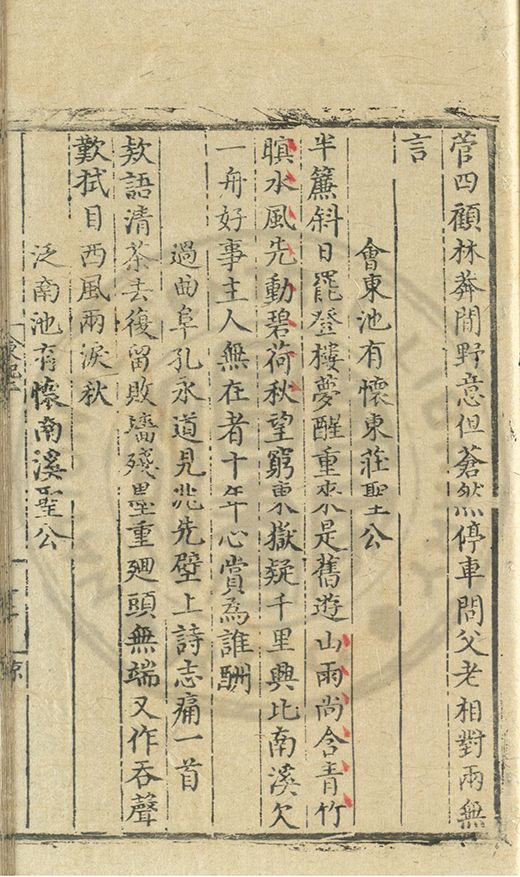 菅四顧林莽間野意但蒼然停車問父老相對兩無
言
會東池有懷東莊聖公
半簾斜日罷登樓夢醒重來是舊遊山雨尚含青竹
暝水風先動碧荷秋望窮東嶽疑千里興比南溪欠
一舟好事主人無在者十年心賞為誰酬
過曲阜孔永道見兆先壁上詩志痛一首
欬語清茶去復留敗墻殘墨重廻頭無端又作吞聲
歎拭目西風兩淚秋
泛南池有懷南溪聖公